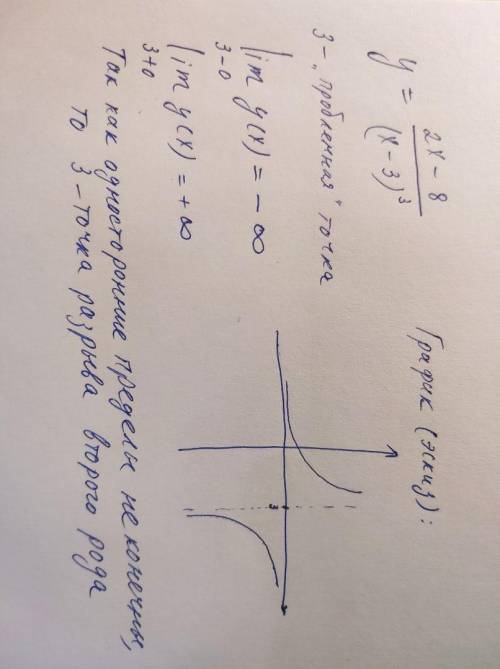 y = \frac{2x - 8}{(x - 3)^3}
3 - „проблемная" точка
lim y(x) = - ∞
3-0
lim y(x) = + ∞
3+0
Так как односторонние пределы не конечны,
то 3 - точка разрыва второго рода
График (эскиз):
3